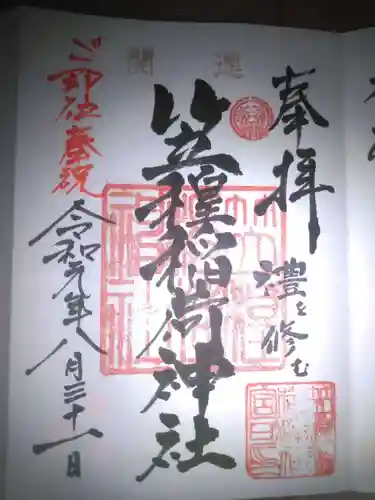 開運
奉拝
禮を修む
笠䅣稲荷神社
ご神社慶祝
令和元年八月三十一日